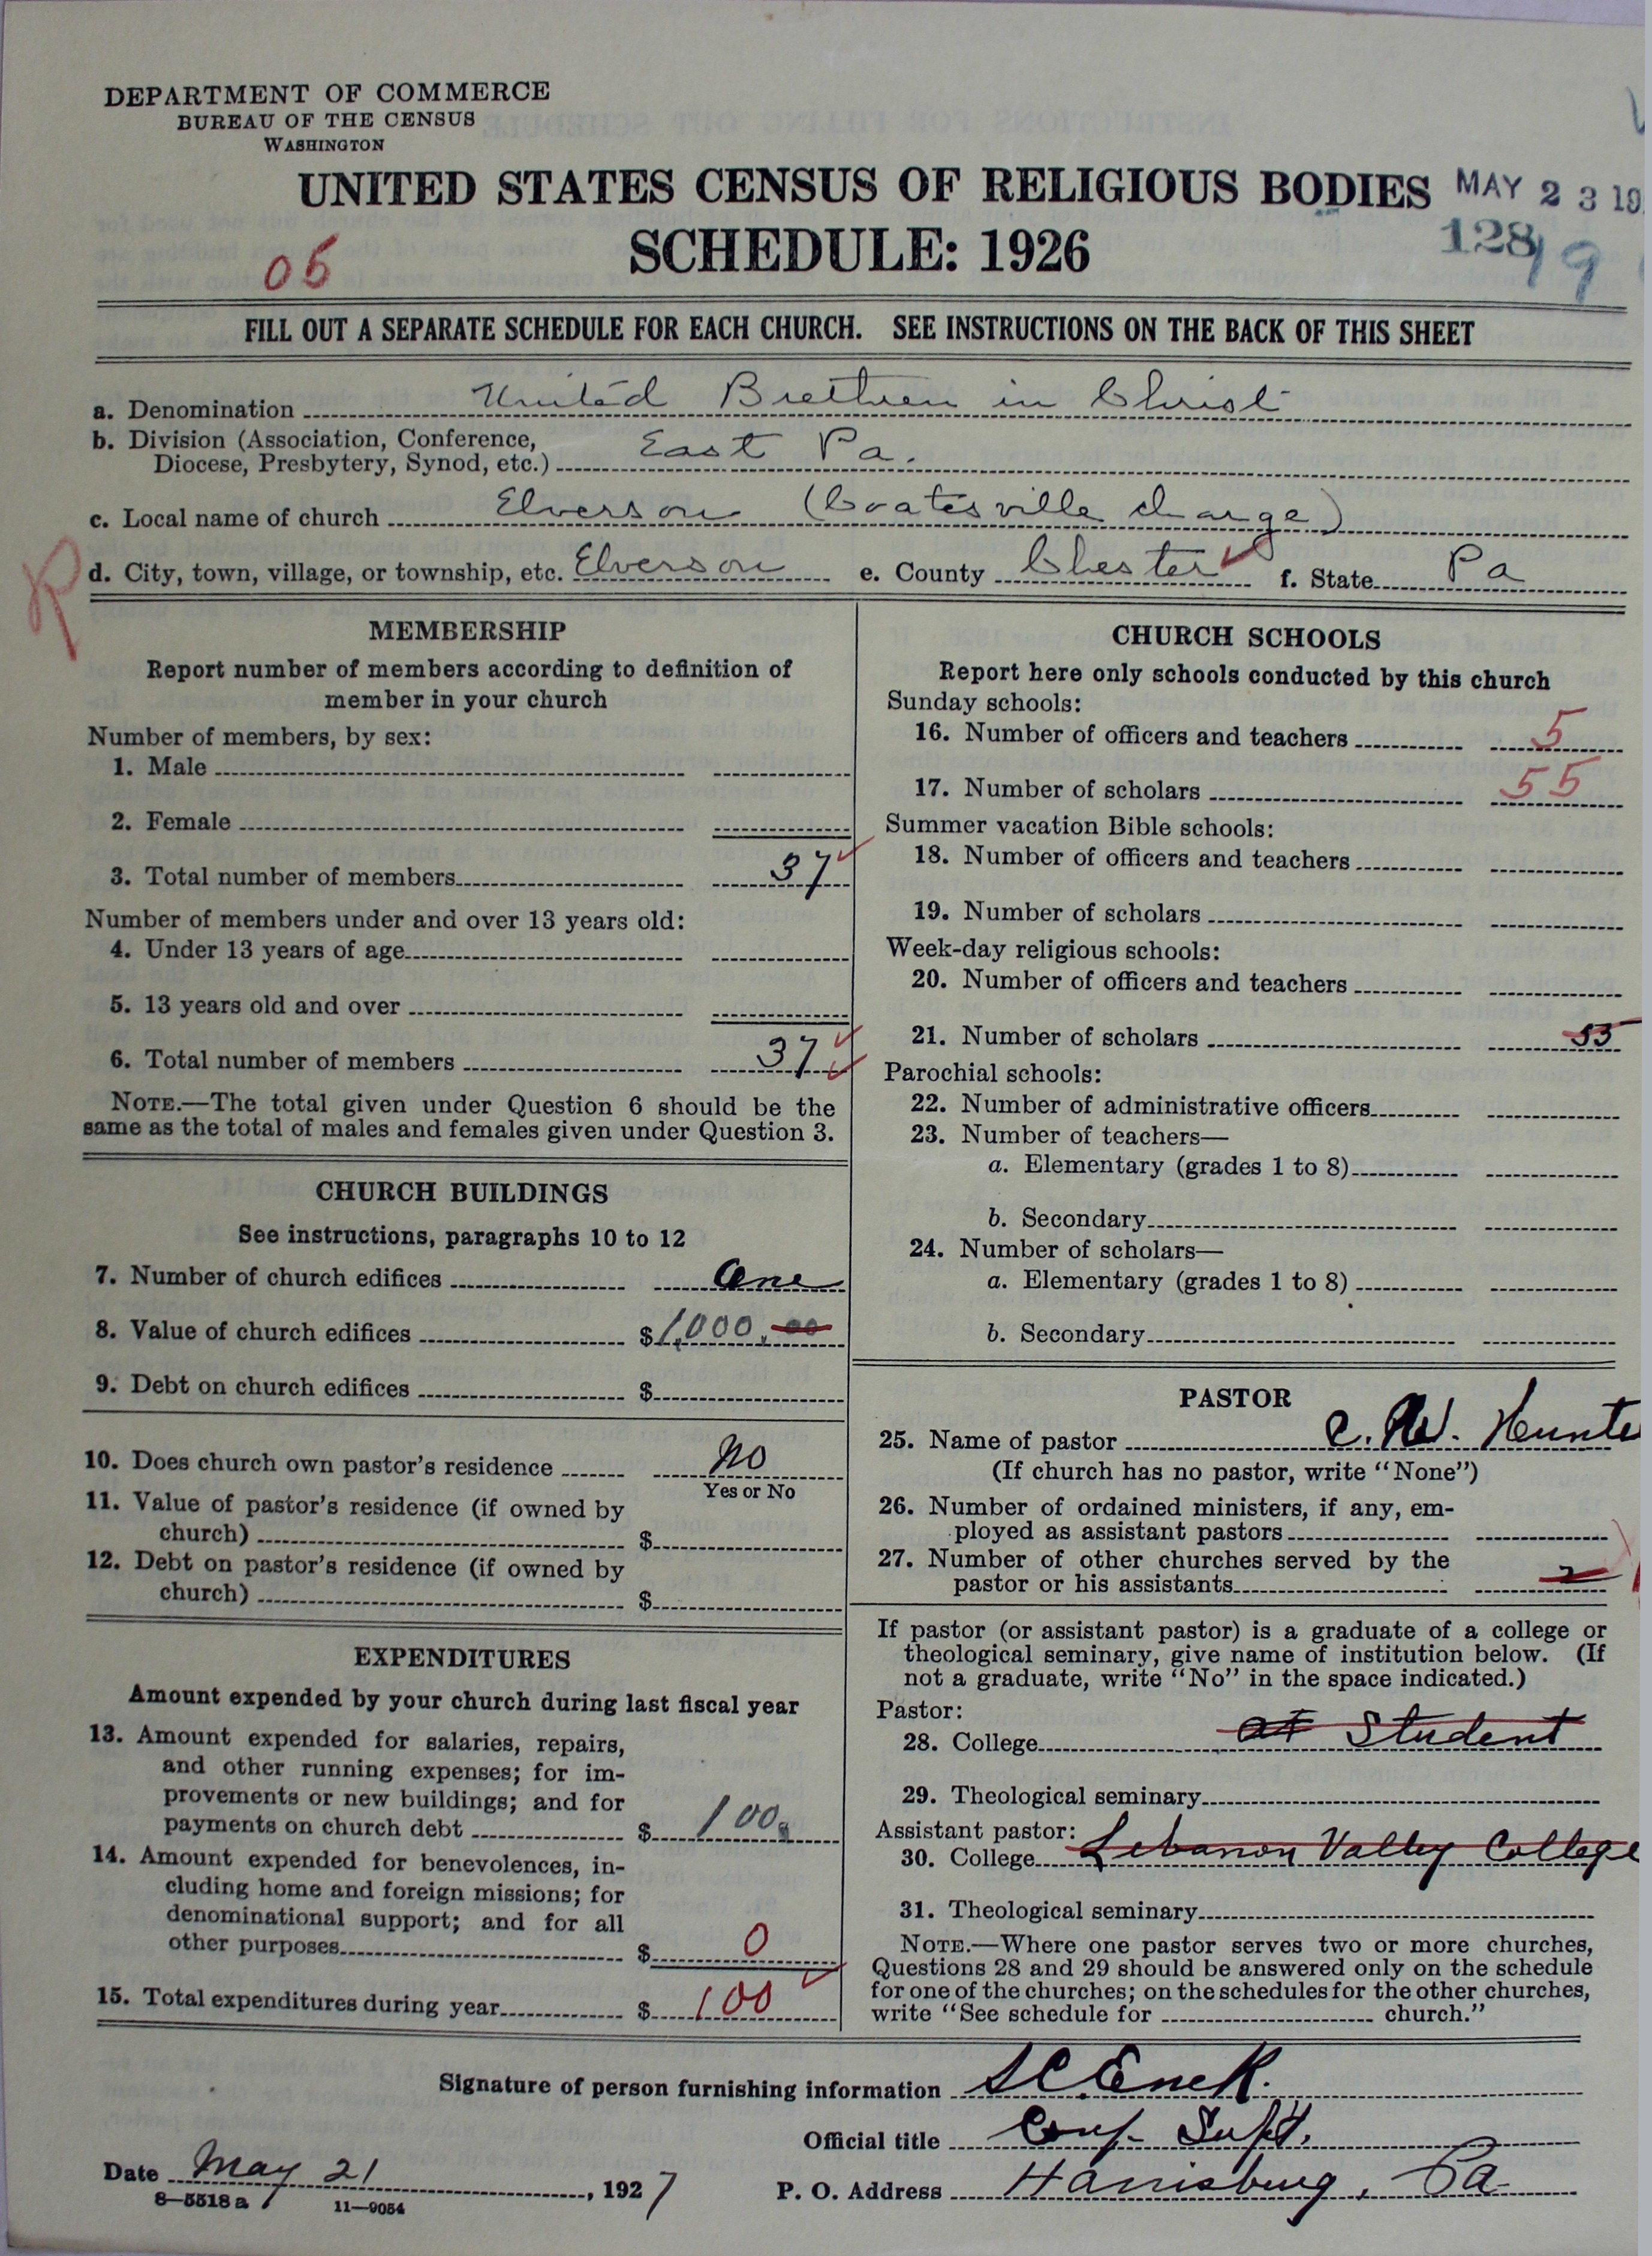 DEPARTMENT OF COMMERCE
BUREAU OF THE CENSUS
WASHINGTON
UNITED STATES CENSUS OF RELIGIOUS BODIES MAY 23 19
SCHEDULE: 1926
128
19
06
FILL OUT A SEPARATE SCHEDULE FOR EACH CHURCH. SEE INSTRUCTIONS ON THE BACK OF THIS SHEET
a. Denomination United Brethren in Christ
b. Division (Association, Conference,
Diocese, Presbytery, Synod, etc.) East Pa.
c. Local name of church Elverson (Coatesville charge)
R
d. City, town, village, or township, etc. Elverson e. County Chester f. State Pa
MEMBERSHIP
Report number of members according to definition of
member in your church
Number of members, by sex:
1. Male
2. Female
3. Total number of members 37
Number of members under and over 13 years old:
4. Under 13 years of age
5. 13 years old and over
6. Total number of members 37
NOTE.—The total given under Question 6 should be the
same as the total of males and females given under Question 3.
CHURCH BUILDINGS
See instructions, paragraphs 10 to 12
7. Number of church edifices One
8. Value of church edifices $1,000.00
9. Debt on church edifices $
10. Does church own pastor's residence No
Yes or No
11. Value of pastor's residence (if owned by
church) $
12. Debt on pastor's residence (if owned by
church) $
EXPENDITURES
Amount expended by your church during last fiscal year
13. Amount expended for salaries, repairs,
and other running expenses; for im-
provements or new buildings; and for
payments on church debt $ 100.
14. Amount expended for benevolences, in-
cluding home and foreign missions; for
denominational support; and for all
other purposes $ 0
15. Total expenditures during year $ 100
CHURCH SCHOOLS
Report here only schools conducted by this church
Sunday schools:
16. Number of officers and teachers 5
17. Number of scholars 55
Summer vacation Bible schools:
18. Number of officers and teachers
19. Number of scholars
Week-day religious schools:
20. Number of officers and teachers
21. Number of scholars 55
Parochial schools:
22. Number of administrative officers
23. Number of teachers—
a. Elementary (grades 1 to 8)
b. Secondary
24. Number of scholars—
a. Elementary (grades 1 to 8)
b. Secondary
PASTOR
25. Name of pastor C. W. Hunte
(If church has no pastor, write "None")
26. Number of ordained ministers, if any, em-
ployed as assistant pastors
27. Number of other churches served by the
pastor or his assistants 2
If pastor (or assistant pastor) is a graduate of a college or
theological seminary, give name of institution below. (If
not a graduate, write "No" in the space indicated.)
Pastor:
28. College at Student
29. Theological seminary
Assistant pastor:
30. College Lebanon Valley College
31. Theological seminary
NOTE.—Where one pastor serves two or more churches,
Questions 28 and 29 should be answered only on the schedule
for one of the churches; on the schedules for the other churches,
write "See schedule for church."
Signature of person furnishing information S C Enck.
Official title Conf. Supt.
Date May 21, 1927 P. O. Address Harrisburg, Pa
8—5518 a 11—9054